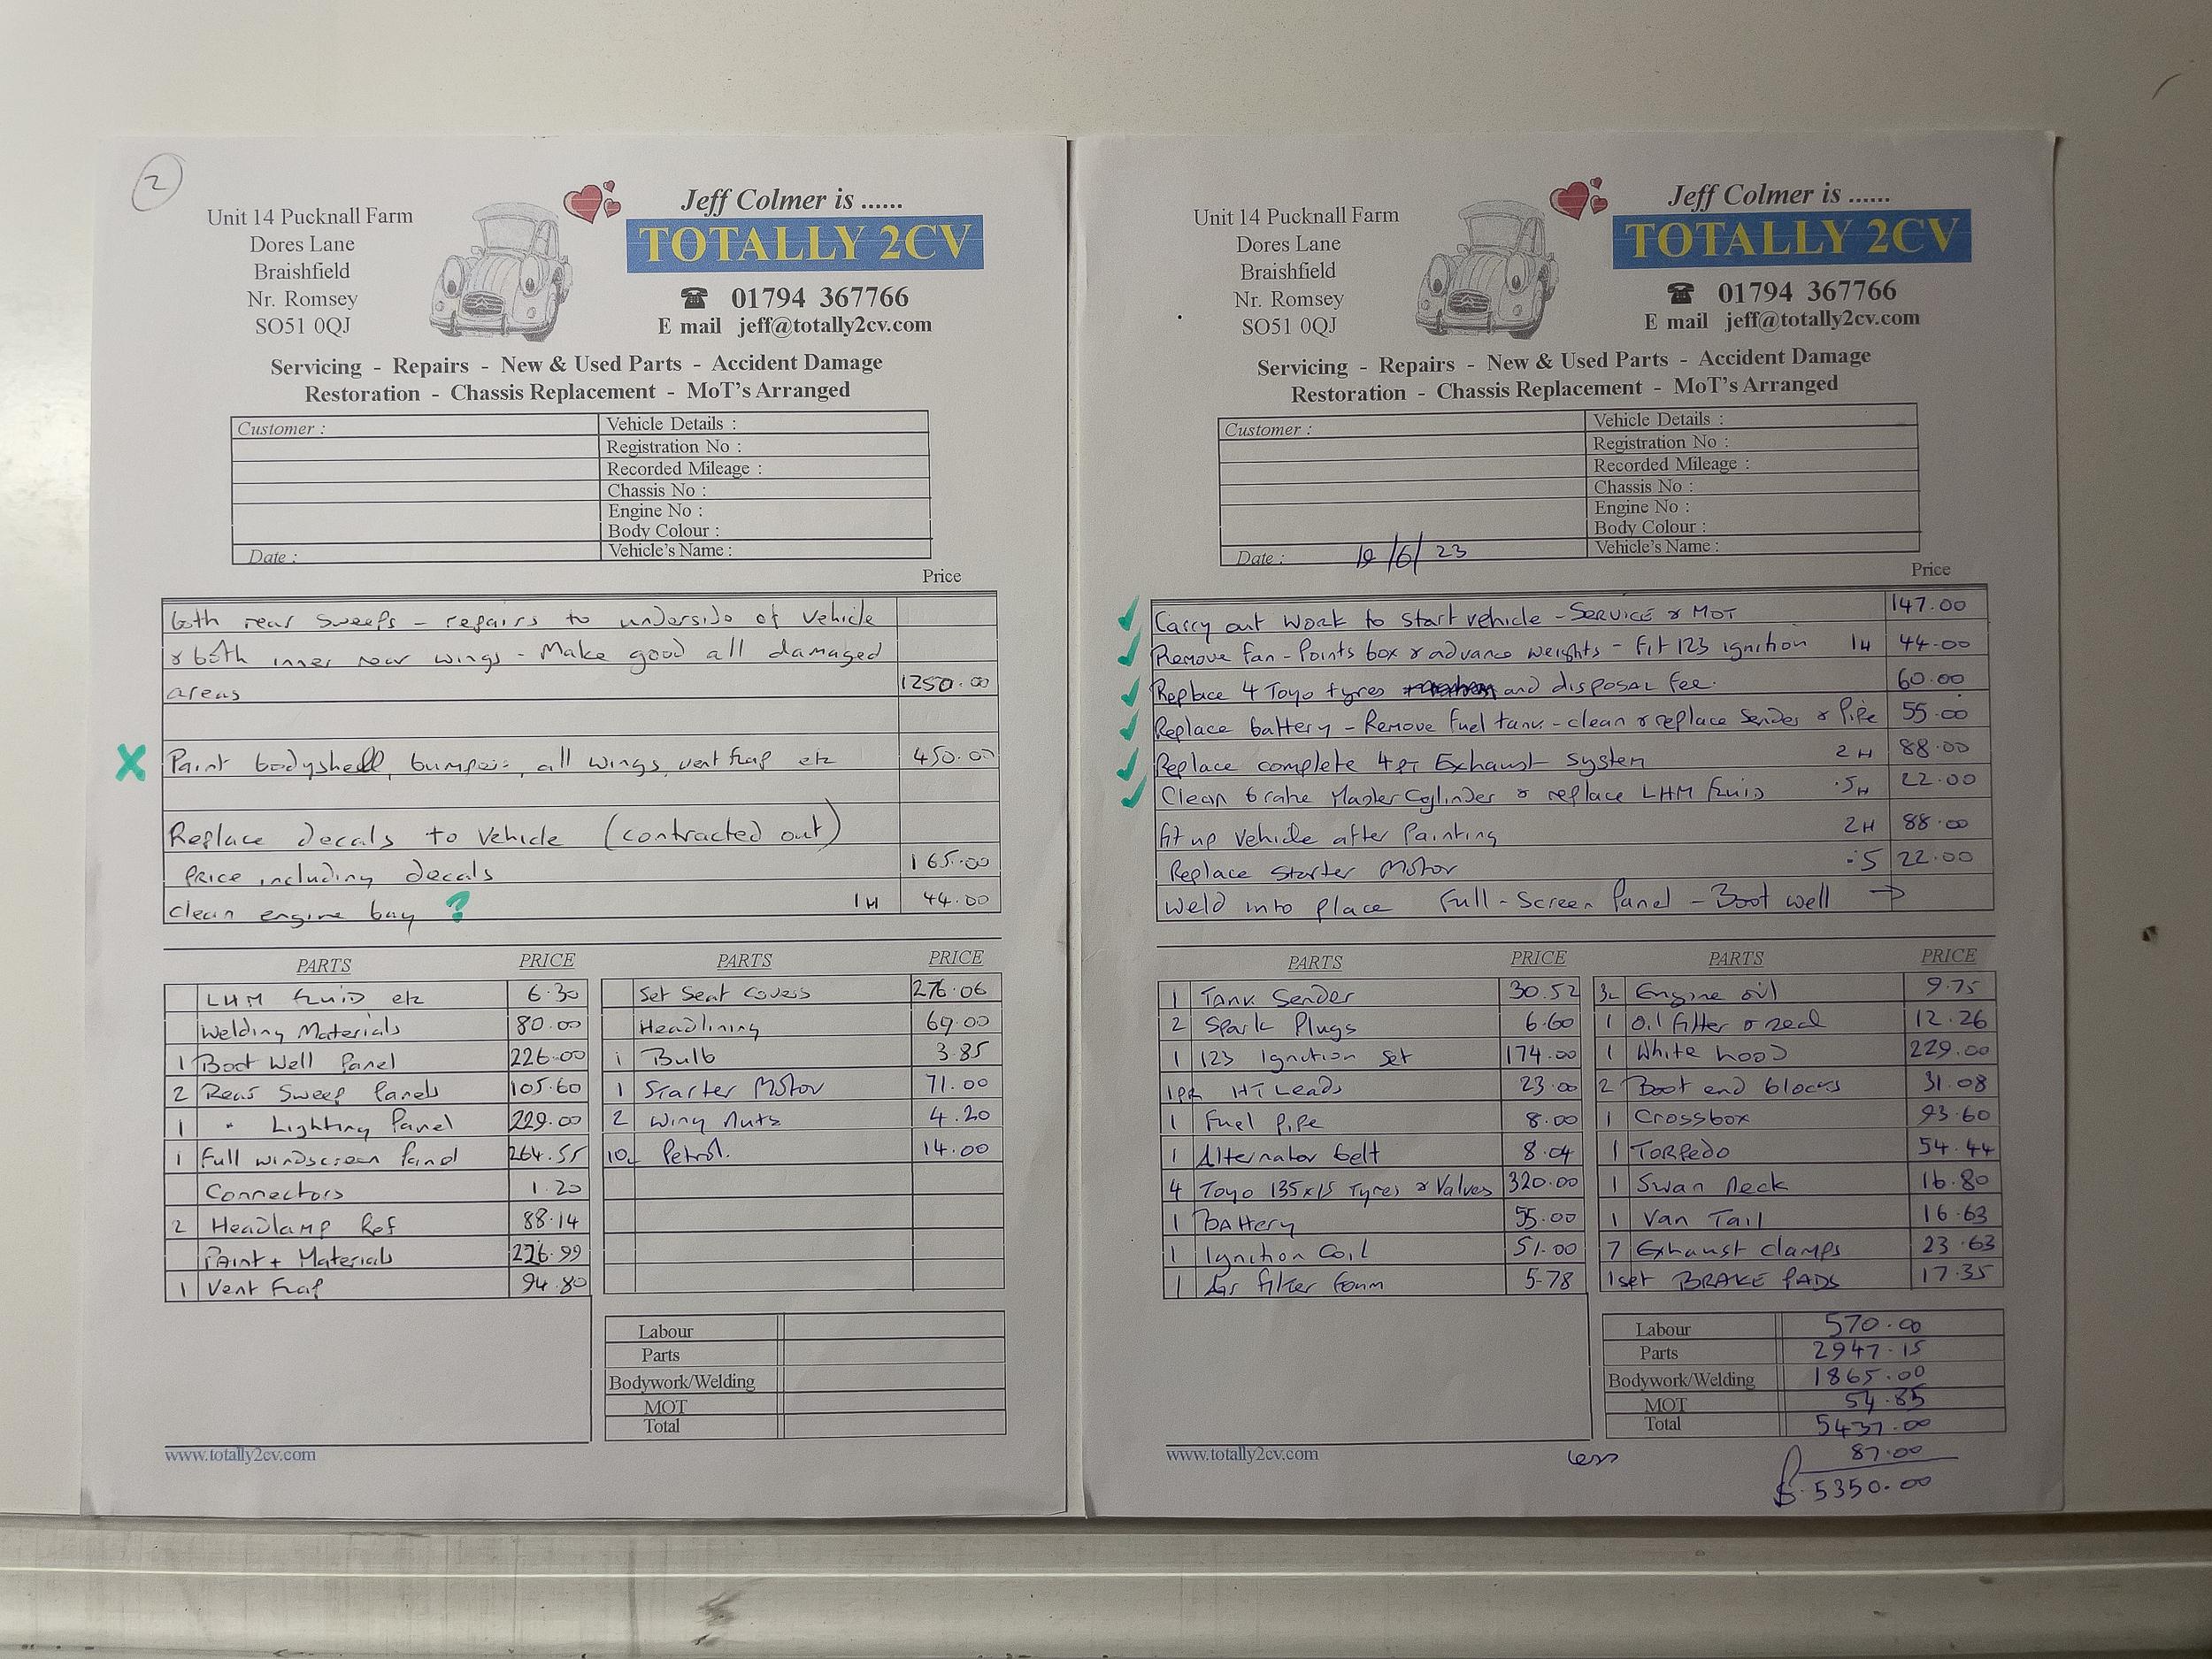 2
Unit 14 Pucknall Farm
Dores Lane
Braishfield
Nr. Romsey
SO51 0QJ
Jeff Colmer is ......
TOTALLY 2CV
☎ 01794 367766
E mail jeff@totally2cv.com
Servicing - Repairs - New & Used Parts - Accident Damage
Restoration - Chassis Replacement - MoT's Arranged
Customer :
Vehicle Details :
Registration No :
Recorded Mileage :
Chassis No :
Engine No :
Body Colour :
Date : Vehicle's Name :
Price
both rear sweeps - repairs to underside of vehicle
& both inner rear wings - Make good all damaged
areas 1250.00
X Paint bodyshell, bumpers, all wings, vent flap etc 450.00
Replace decals to vehicle (contracted out)
Price including decals 165.00
clean engine bay ? 1H 44.00
PARTS PRICE PARTS PRICE
LHM fluid etc 6.30 Set Seat covers 276.06
Welding Materials 80.00 Headlining 69.00
1 Boot Well Panel 226.00 1 Bulb 3.85
2 Rear Sweep Panels 105.60 1 Starter Motor 71.00
1 " Lighting Panel 229.00 2 Wing Nuts 4.20
1 Full windscreen Panel 264.55 10L Petrol. 14.00
Connectors 1.20
2 Headlamp Ref 88.14
Paint + Materials 226.99
1 Vent Flap 94.80
Labour
Parts
Bodywork/Welding
MOT
Total
www.totally2cv.com
Unit 14 Pucknall Farm
Dores Lane
Braishfield
Nr. Romsey
SO51 0QJ
Jeff Colmer is ......
TOTALLY 2CV
☎ 01794 367766
E mail jeff@totally2cv.com
Servicing - Repairs - New & Used Parts - Accident Damage
Restoration - Chassis Replacement - MoT's Arranged
Customer :
Vehicle Details :
Registration No :
Recorded Mileage :
Chassis No :
Engine No :
Body Colour :
Date : /6/23 Vehicle's Name :
Price
✓ Carry out work to start vehicle - SERVICE & MOT 147.00
✓ Remove fan - Points box & advance weights - Fit 123 ignition 1H 44.00
✓ Replace 4 Toyo tyres and disposal fee. 60.00
✓ Replace battery - Remove fuel tank - clean & replace Sender & Pipe 55.00
✓ Replace complete 4PT Exhaust System 2H 88.00
✓ Clean brake Master Cylinder & replace LHM fluid .5H 22.00
fit up vehicle after Painting 2H 88.00
Replace Starter Motor .5 22.00
Weld into place Full-Screen Panel - Boot well →
PARTS PRICE PARTS PRICE
1 Tank Sender 30.52 3L Engine oil 9.75
2 Spark Plugs 6.60 1 Oil filter & seal 12.26
1 123 Ignition Set 174.00 1 White hood 229.00
1PR HT Leads 23.00 2 Boot end blocks 31.08
1 Fuel Pipe 8.00 1 Crossbox 93.60
1 Alternator belt 8.04 1 Torpedo 54.44
4 Toyo 135x15 Tyres & Valves 320.00 1 Swan Neck 16.80
1 Battery 55.00 1 Van Tail 16.63
1 Ignition Coil 51.00 7 Exhaust clamps 23.63
1 Air filter foam 5-78 1set BRAKE PADS 17.35
Labour 570.00
Parts 2947.15
Bodywork/Welding 1865.00
MOT 54.85
Total 5437.00
www.totally2cv.com
less 87.00
£5350.00